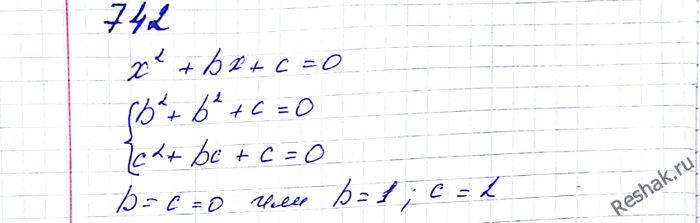 742
x² + bx + c = 0
{b² + b² + c = 0
c² + bc + c = 0
b = c = 0 или b = 1; c = 2
Reshak.ru